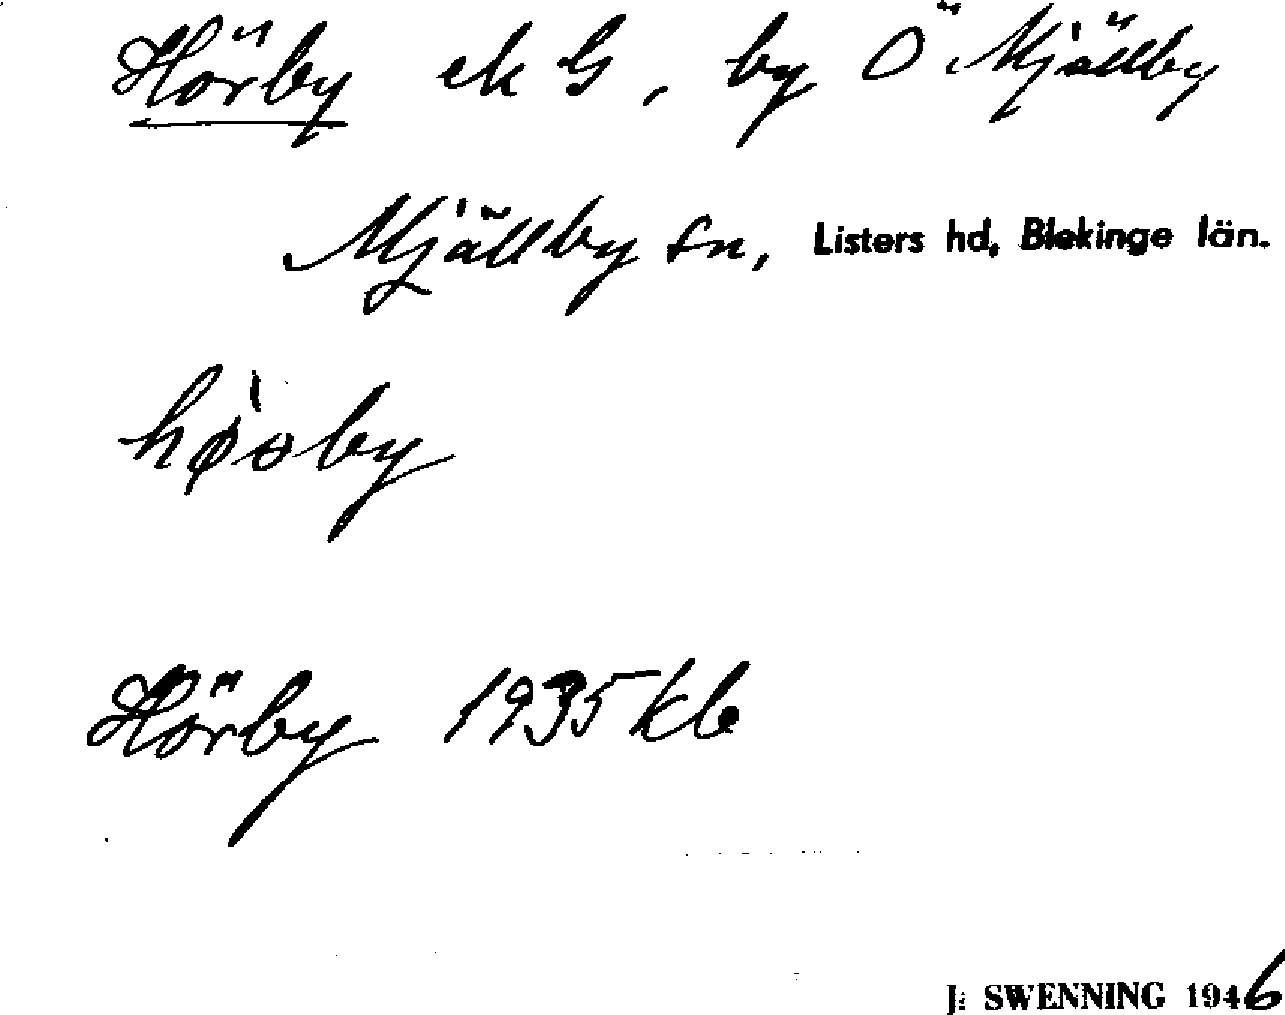 Hörby ek G, by Ö Mjällby
Mjällby sn, Listers hd, Blekinge län.
Hörby 1935 kb
J. SWENNING 1946